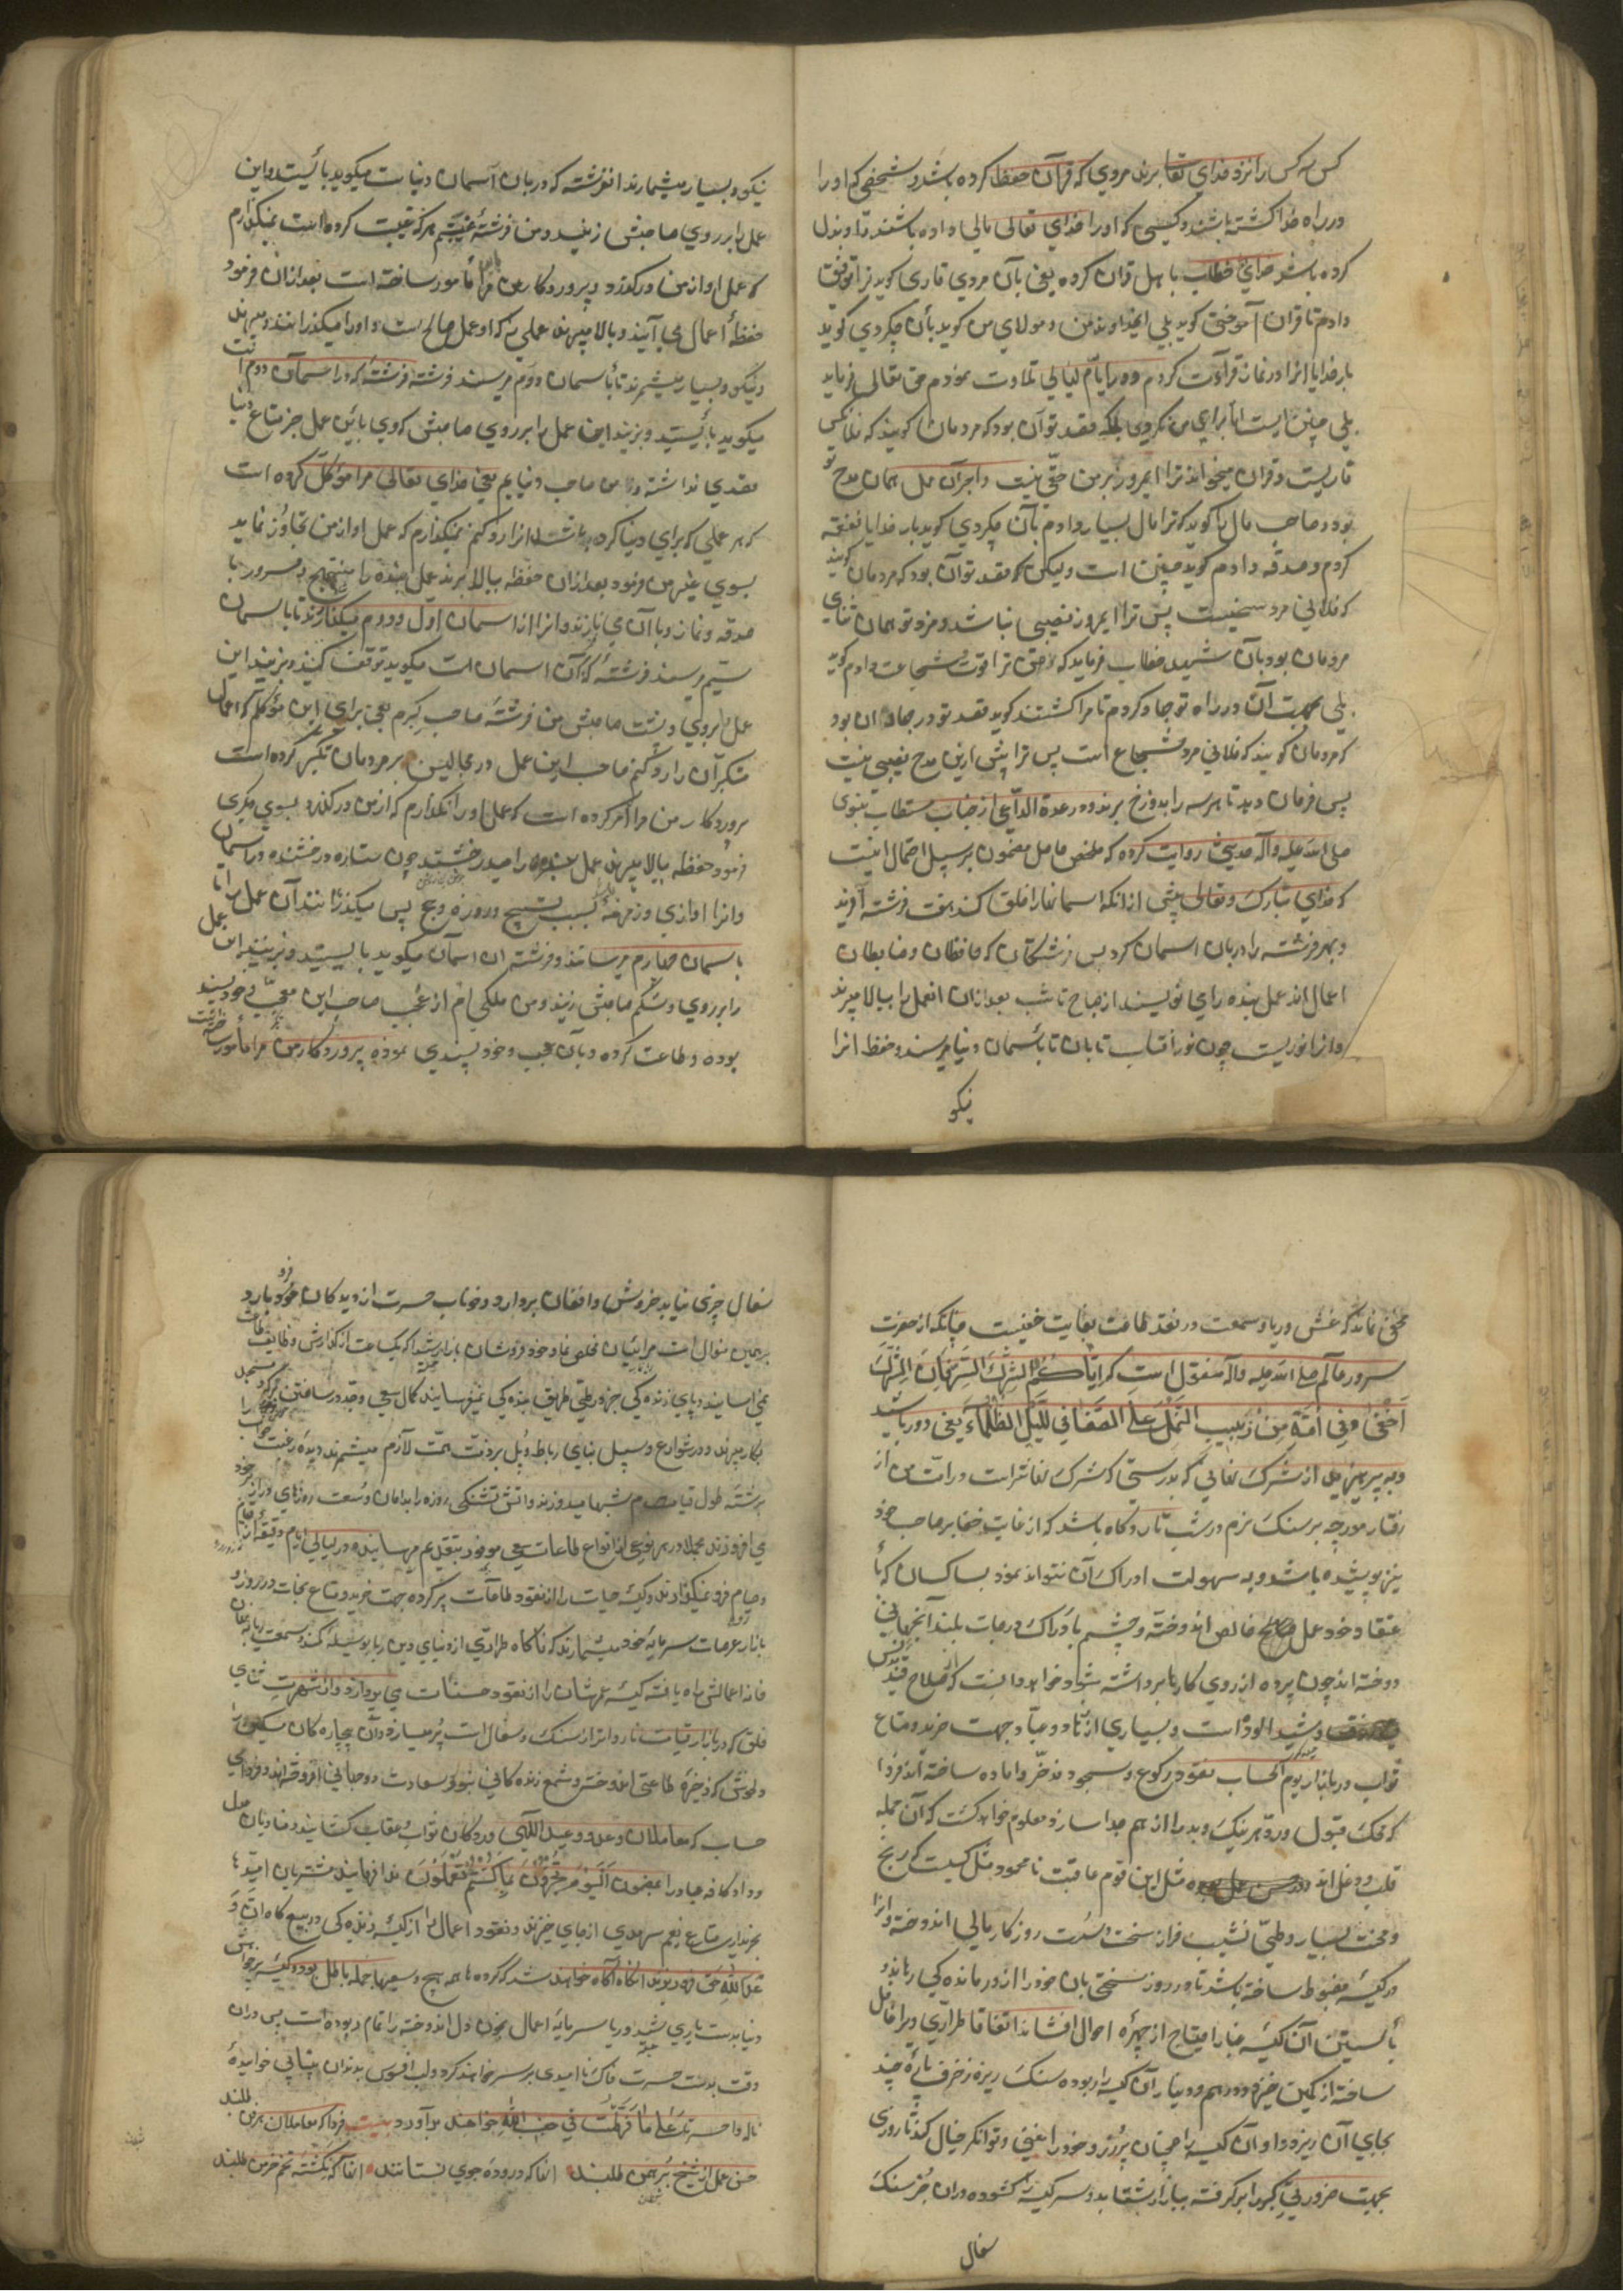 کس به کس را نزد خدای تعالی برند مردی که قرآن حفظ کرده باشد و شخصی که او را
در راه خدا کشته باشند و کسی که او را خدای تعالی مالی داده باشند تا او بذل
کرده باشد خدای خطاب با اهل قران کرده یعنی بآن مردی قاری کوید ترا توفیق
دادم تا قران آموختی کوید بلی ایخداوند من و مولای من کوید بآن چکردی کوید
بار خدایا انرا در نماز قرائت کردم و در ایام لیالی تلاوت نمودم حق تعالی فرماید
بلی چنین است اما برای من نکردی بلکه قصد تو آن بود که مردمان کویند که فلانکس
قاریست و قران میخواند ترا امروز بر من حقی نیست و اجر آن عمل همان مدح تو
بود و صاحب مال را کوید که ترا مال بسیار دادم بآن چکردی کوید بار خدایا نفقه
کردم و صدقه دادم کوید چنین است ولیکن که قصد تو آن بود که مردمان کویند
که فلانی مرد سخیست پس ترا امروز نصیبی نباشد و مزد تو همان ثنای
مردمان بود بآن شهید خطاب فرماید که من ترا قوت و شجاعت دادم کوید
بلی بجهت آن در راه تو جهاد کردم تا مرا کشتند کوید قصد تو در جهاد ان بود
که مردمان کویند که فلانی مرد شجاع است پس ترا پیش ازین مدح نصیبی نیست
پس فرمان دهد تا هر سه را بدوزخ برند و در عدة الداعی از جناب مستطاب نبوی
صلی الله علیه و آله حدیثی روایت کرده که ملخص حاصل مضمون بر سبیل اجمال اینست
که خدای تبارک و تعالی پیش از انکه اسمانها را خلق کند هفت فرشته آفرید
و هر فرشته را دربان اسمان کرد پس فرشتکان که حافظان و ضابطان
اعمال اند عمل بنده را می نویسند از صباح تا شب بعد از ان انعمل را ببالا میبرند
و انرا نوریست چون نور آفتاب تابان تا بآسمان دنیا میرسند و حفظه انرا
نیکو
نیکو و بسیار میشمارند انفرشته که دربان آسمان دنیاست میکوید بایستید و این
عمل را بر روی صاحبش زنید و من فرشتهٔ غیبتم هر که غیبت کرده است نمیکذارم
که عمل او از من درکذرد و پروردکار من مرا باین مأمور ساخته است بعد از ان فرمود
حفظهٔ اعمال می آیند و بالا میبرند عملی را که او عمل صالح است و او را میکذرانند و میبرند
و نیکو و بسیار میشمرند تا بآسمان دوم میرسند فرشته که در اسمان دوم است
میکوید بایستید و بزنید این عمل را بر روی صاحبش که وی باین عمل جز متاع دنیا
قصدی نداشته و من صاحب دنیایم یعنی خدای تعالی مرا موکل کرده است
که هر عملی که برای دنیا کرده باشند انرا رد کنم نمیکذارم که عمل او از من تجاوز نماید
بسوی غیر من فرمود بعد از ان حفظه ببالا برند عمل بنده را مبتهج و مسرور با
صدقه و نماز و با آن می نازند و انرا از اسمان اول و دوم میکذارند تا باسمان
سیم میرسند فرشته که در آن اسمان است میکوید توقف کنید و بزنید این
عمل را بروی و پشت صاحبش من فرشتهٔ صاحب کبرم یعنی برای این مؤکلم که اعمال
متکبرآن را رد کنم صاحب این عمل در مجالس بر مردمان تکبر کرده است
پروردکار من مرا امر کرده است که عمل او را نکذارم که از من درکذرد بسوی دیکری
فرمود حفظه ببالا میبرند عمل بنده را میدرخشد چون ستاره درخشنده در اسمان
و انرا اوازی و زمزمهٔ بسبب تسبیح و روزه و حج پس میکذرانند آن عمل را تا
باسمان چهارم میرسانند و فرشته ان اسمان میکوید بایستید و بزنید این عمل
را بر روی و شکم صاحبش زنید و من ملکی ام از عجب صاحب این معجب و خود پسند
بوده و طاعت کرده و بآن عجب و خود پسندی نموده پروردکار من مرا مأمور ساخته
مخفی نماند که غش و ریا و سمعت در نقد طاعت بغایت خفیست چنانکه از حضرت
سرور عالم صلی الله علیه و آله منقول است که ایاکم و الشرک السرنهان الشرک
اخفی وفی امتی من دبیب النمل علی الصفا فی اللیل الظلماء یعنی دور باشید
و بپرهیزید از شرک نهانی که بدرستی که شرک نهانتر است در امت من از
رفتار مورچه بر سنک نرم در شب تار و کاه باشد که از غایت خفا بر صاحب خود
نیز پوشیده باشد و به سهولت ادراک آن نتواند نمود بسا کسان که با
عتقاد خود عمل صالح خالص اندوخته و چشم بادراک درجات بلند آنجهانی
دوخته اند چون پرده از روی کارها برداشته شود خواهد دانست که صلاح
و شید الوداست و بسیاری از تاد و عباد جهت خرید متاع
ثواب در بازار یوم الحساب نقود رکوع و سجود مذخر و اماده ساخته اند فردا
که محک قبول و رد هر نیک و بد را از هم جدا سازد معلوم خواهد کشت که آن جمله
قلب و دغل اند مثل این قوم عاقبت نامحمود مثل کیست که رنج
و محنت بسیار و طی نشیب فراز سخت و سست روزکار مالی اندوخته و انرا
در کیسه مضبوط ساخته باشد تا در روز سختی بآن خود را از درماندکی رهاند و
بآستین آن کیسه غبار احتیاج از چهرهٔ احوال افشاند اتفاقا طراری ویرا غافل
ساخته از کمین خیزد و درهم و دینار آن کیسه را ربوده سنک ریزه و خزف پارهٔ چند
بجای آن ریزد و او آن کیسه را همچنان پر زر و خود را غنی و توانکر خیال کند تا روزی
بجهت ضروریی کیسه را برکرفته ببازار شتابد و سر کیسه را کشوده در ان جز سنک
سفال
سفال چیزی نیابد خروش و افغان بردارد و خوناب حسرت از دیدکان خود فرو بارد
برهمین منوال است مرائیان مخلص نما و خود فروشان بازار که یکساعت از کذارش وظایف طاعات
نمی اسایند و پای زندکی جز در طی طریق بندکی نمیفرسایند کمال سعی و جد در ساختن
بکار میبرند و در شوارع و سبیل بنای رباط و پل بر ذمت همت لازم میشمرند دیدهٔ رغبت
برشتهٔ طول قیام شبها میدوزند و آتش تشنکی روزه را بدامان وسعت روزهای دراز بر خود
می افروزند مجملا در هر نوعی از انواع طاعات سعی موفور بتقدیم میرسانند و در لیالی ایام دقیقهٔ از قیام
و صیام فرو نمیکذارند و کیسه حیات را از نقود طاعات پر کرده جهت خرید متاع نجات در روز
بازار عرصات سرمایه خود میشمارند که ناکاه طراری از دنیای دین ربا بوسیله کمند سمعت و ریا بنهان
خانه اعمالش راه یافته کیسه عمرشان را از نقود حسنات می پردازد و از شهرت ثنای
خلق که در بازار قیامت ناروانر از سنک و سفال است پر میسازد و آن بیچاره کان مسکین را
دلخوش که ذخیرهٔ طاعتی اندوخته و شمع زنده کانی بنور سعادت دو جهانی افروخته اند و فردای
حساب که معاملان وعد و وعید اللهی در دکان ثواب و عقاب کشایند و منادیان عدل
و داد کافه عباد را بمضمون الیوم تجزون بما کنتم تعملون ندا فرمایند مشتریان امید
بخریداری متاع نعیم سرمدی از جای خیزند و نقود اعمال را از کیسه زنده کی در بیع کاه
علی الله حق فرو ریزند انکاه آکاه خواهند شد که کرده ها همه هیچ و سعیها جمله باطل بود و کیسه بر خواهش
دنیا بدستیاری شید و ریا سرمایه اعمال بخون دل اندوخته را تمام ربوده است پس در ان
وقت بدست حسرت خاک ناامیدی بر سر خواهند کرد و لب افسوس بدندان پشیمانی خواییده
ناله وا حسرتا علی ما فرطت فی جنب الله خواهند برآورد بیت فردا که معاملان هر فن طلبند
حسن عمل از شیخ و برهمن طلبند انها که دروده جوی نستانند انها که نکشته تخم خرمن طلبند